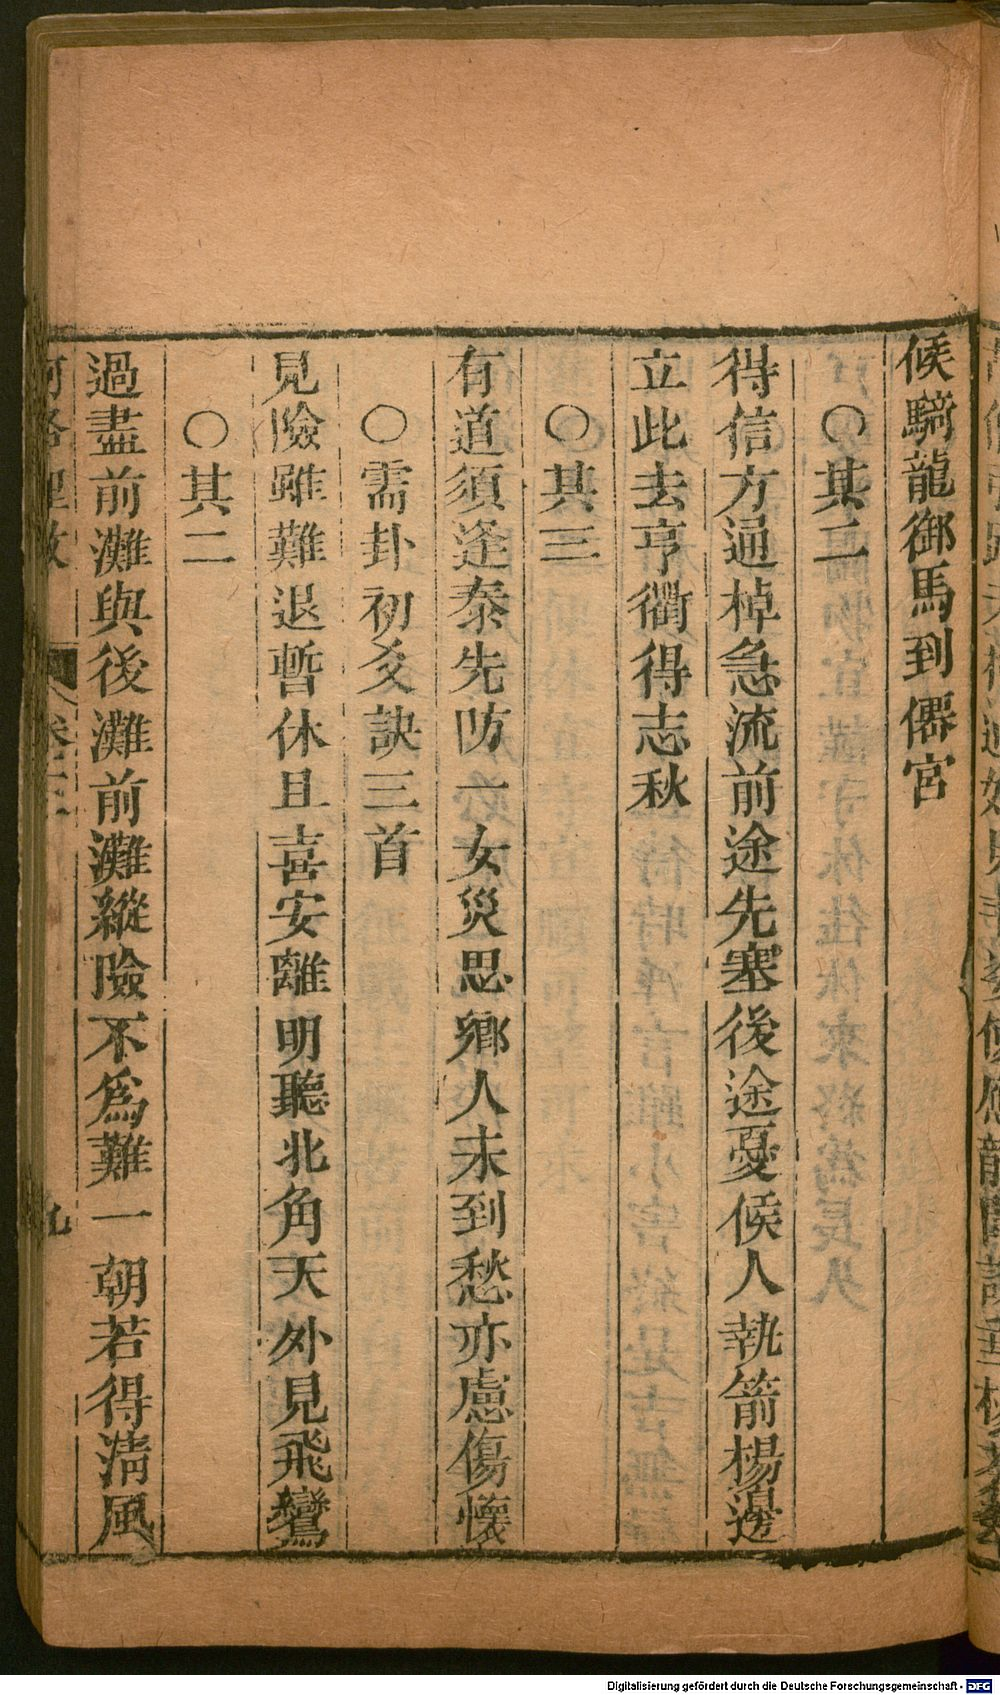 候騎龍御馬到僊宮
〇其二
得信方逼棹急流前途先塞後途憂候人執箭楊邊
立此去亨衢得志秋
〇其三
有道須逢泰先防一女災思鄉人未到愁亦慮傷懷
〇需卦初爻訣三首
見險雖難退暫休且喜安離明聽北角天外見飛鸞
〇其二
過盡前灘與後灘前灘縱險不為難一朝若得清風
河洛理數 卷二 九
Digitalisierung gefördert durch die Deutsche Forschungsgemeinschaft - DFG